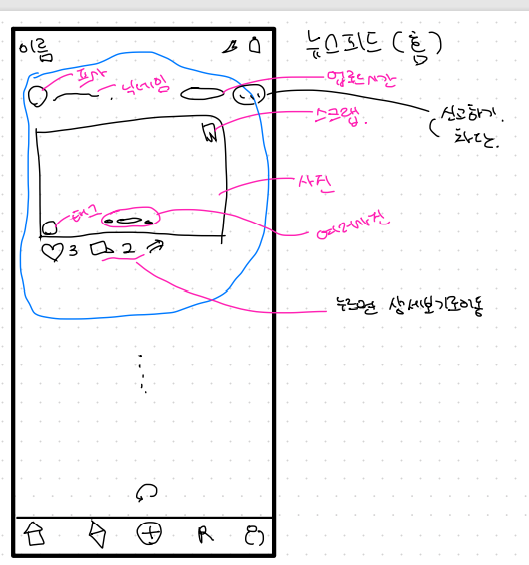 이름
뉴스피드 (홈)
프사
닉네임
업로드시간
신고하기
차단.
스크랩.
사진
태그
여러사진
3 2
누르면 상세보기로이동
R